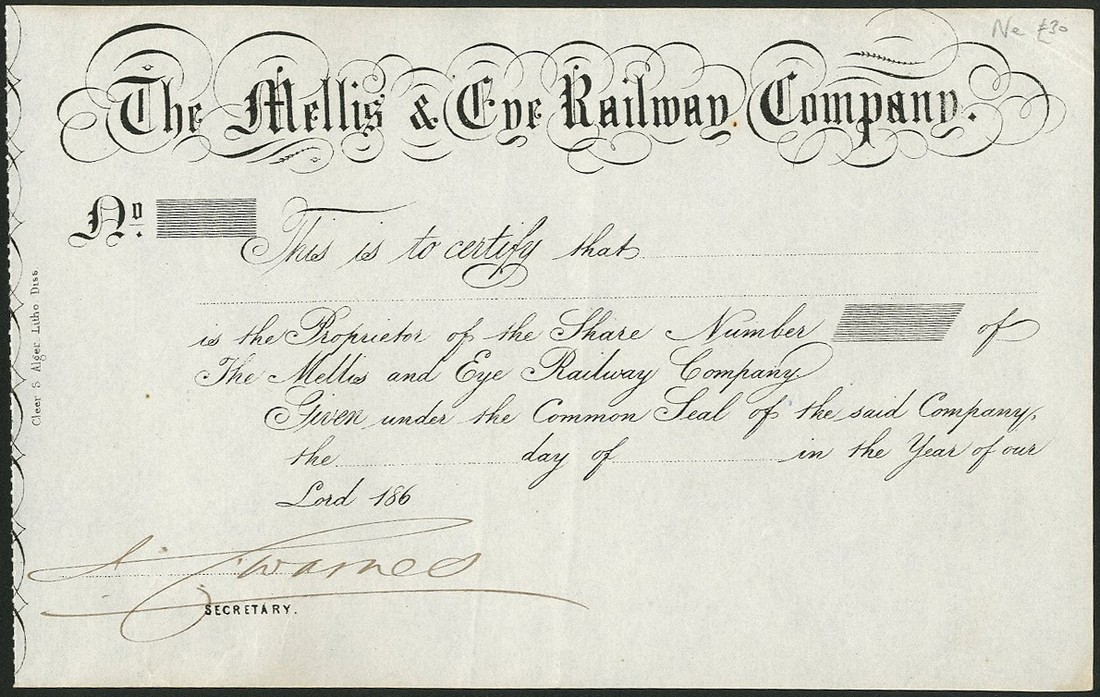 Ne £30
The Mellis & Eye Railway Company.
No.
This is to certify that
is the Proprietor of the Share Number of
The Mellis and Eye Railway Company
Given under the Common Seal of the said Company,
the day of in the Year of our
Lord 186
SECRETARY.
Cleer S Alger Litho Diss